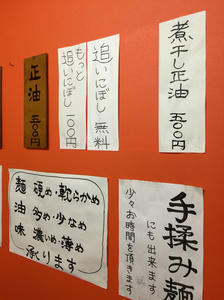 煮干し正油 五〇〇円
追いにぼし 無料
もっと
追いにぼし 一〇〇円
正油 五〇〇円
手揉み麺
にも出来ます
少々お時間を頂きます
麺 硬め・軟らかめ
油 多め・少なめ
味 濃いめ・薄め
承ります